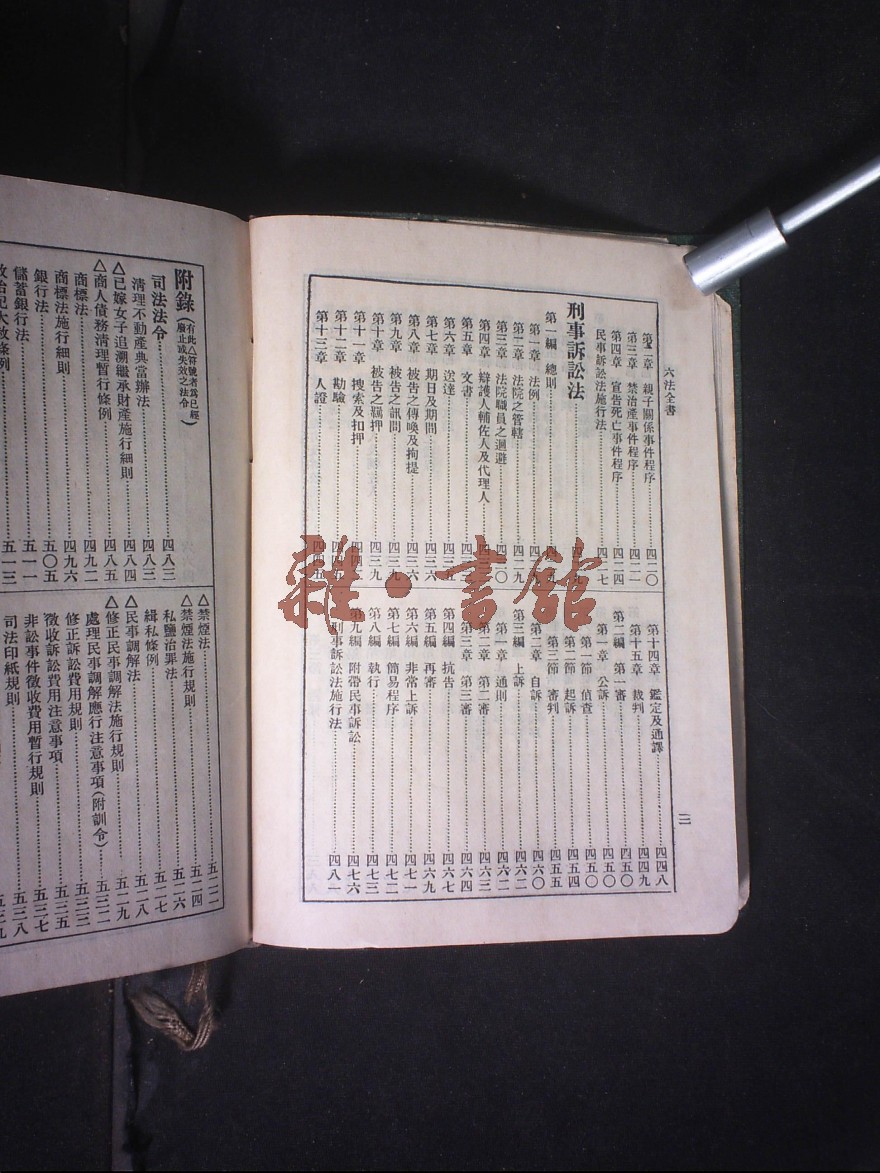 六法全書
第二章 親子關係事件程序 四二〇
第三章 禁治產事件程序 四二二
第四章 宣告死亡事件程序 四二四
民事訴訟法施行法 四二七
刑事訴訟法
第一編 總則
第一章 法例
第二章 法院之管轄 四二九
第三章 法院職員之迴避
第四章 辯護人輔佐人及代理人
第五章 文書
第六章 送達
第七章 期日及期間 四三六
第八章 被告之傳喚及拘提 四三六
第九章 被告之訊問
第十章 被告之羈押 四三九
第十一章 搜索及扣押
第十二章 勘驗
第十三章 人證 四四五
第十四章 鑑定及通譯 四四八
第十五章 裁判 四四九
第二編 第一審 四五〇
第一章 公訴 四五〇
第一節 偵查 四五〇
第二節 起訴 四五四
第三節 審判 四五五
第二章 自訴 四六〇
第三編 上訴 四六二
第一章 通則 四六二
第二章 第二審 四六三
第三章 第三審 四六四
第四編 抗告 四六七
第五編 再審 四六九
第六編 非常上訴 四七一
第七編 簡易程序 四七二
第八編 執行 四七三
第九編 附帶民事訴訟 四七六
刑事訴訟法施行法 四八一
二
附錄(有此△符號者爲已經廢止或失效之法令)
司法法令 四八三
清理不動產典當辦法 四八三
△已嫁女子追溯繼承財產施行細則 四八四
△商人債務清理暫行條例 四八五
商標法 四九二
商標法施行細則 四九六
銀行法 五〇五
儲蓄銀行法 五一一
五一三
△禁煙法 五二二
△禁煙法施行規則 五二四
私鹽治罪法 五二六
緝私條例 五二七
△民事調解法 五二八
△修正民事調解法施行規則 五二九
處理民事調解應行注意事項(附訓令) 五三二
修正訴訟費用規則 五三三
徵收訴訟費用注意事項 五三五
非訟事件徵收費用暫行規則 五三七
司法印紙規則 五三八
五三九
雜·書館